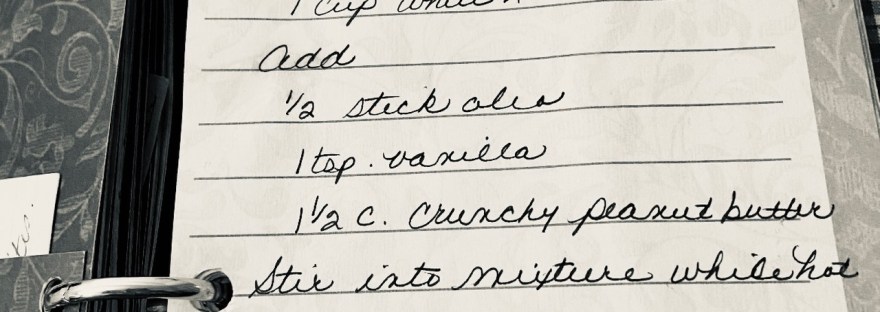 1 Cup
Add
1/2 stick oleo
1 tsp. vanilla
1 1/2 c. Crunchy peanut butter
Stir into mixture while hot